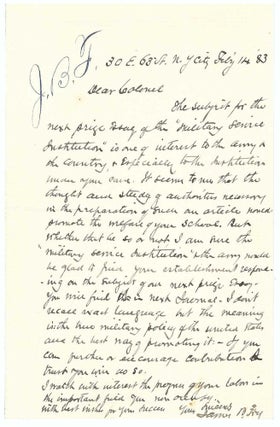 J.B.F.
30 E. 63 St. N.Y City Feby 14 '83
Dear Colonel
The subject for the
next prize Essay of the "Military Service
Institution" is one of interest to the army &
the country, & Especially to the Institution
under your care. It seems to me that the
thought and study of authorities necessary
in the preparation of such an article would
promote the welfare of your School. But
whether that be so or not I am sure the
"Military Service Institution" & the army would
be glad to find your establishment respond-
ing on the subject of our next prize Essay.
You will find this in next Journal. I don't
recall exact language but the meaning
is the true military policy of the United States
and the best way of promoting it - If you
can further or encourage contribution I
trust you will do so.
I watch with interest the progress of your labors in
the important field you now occupy.
With best wishes for your success Yours Sincerely
James B. Fry